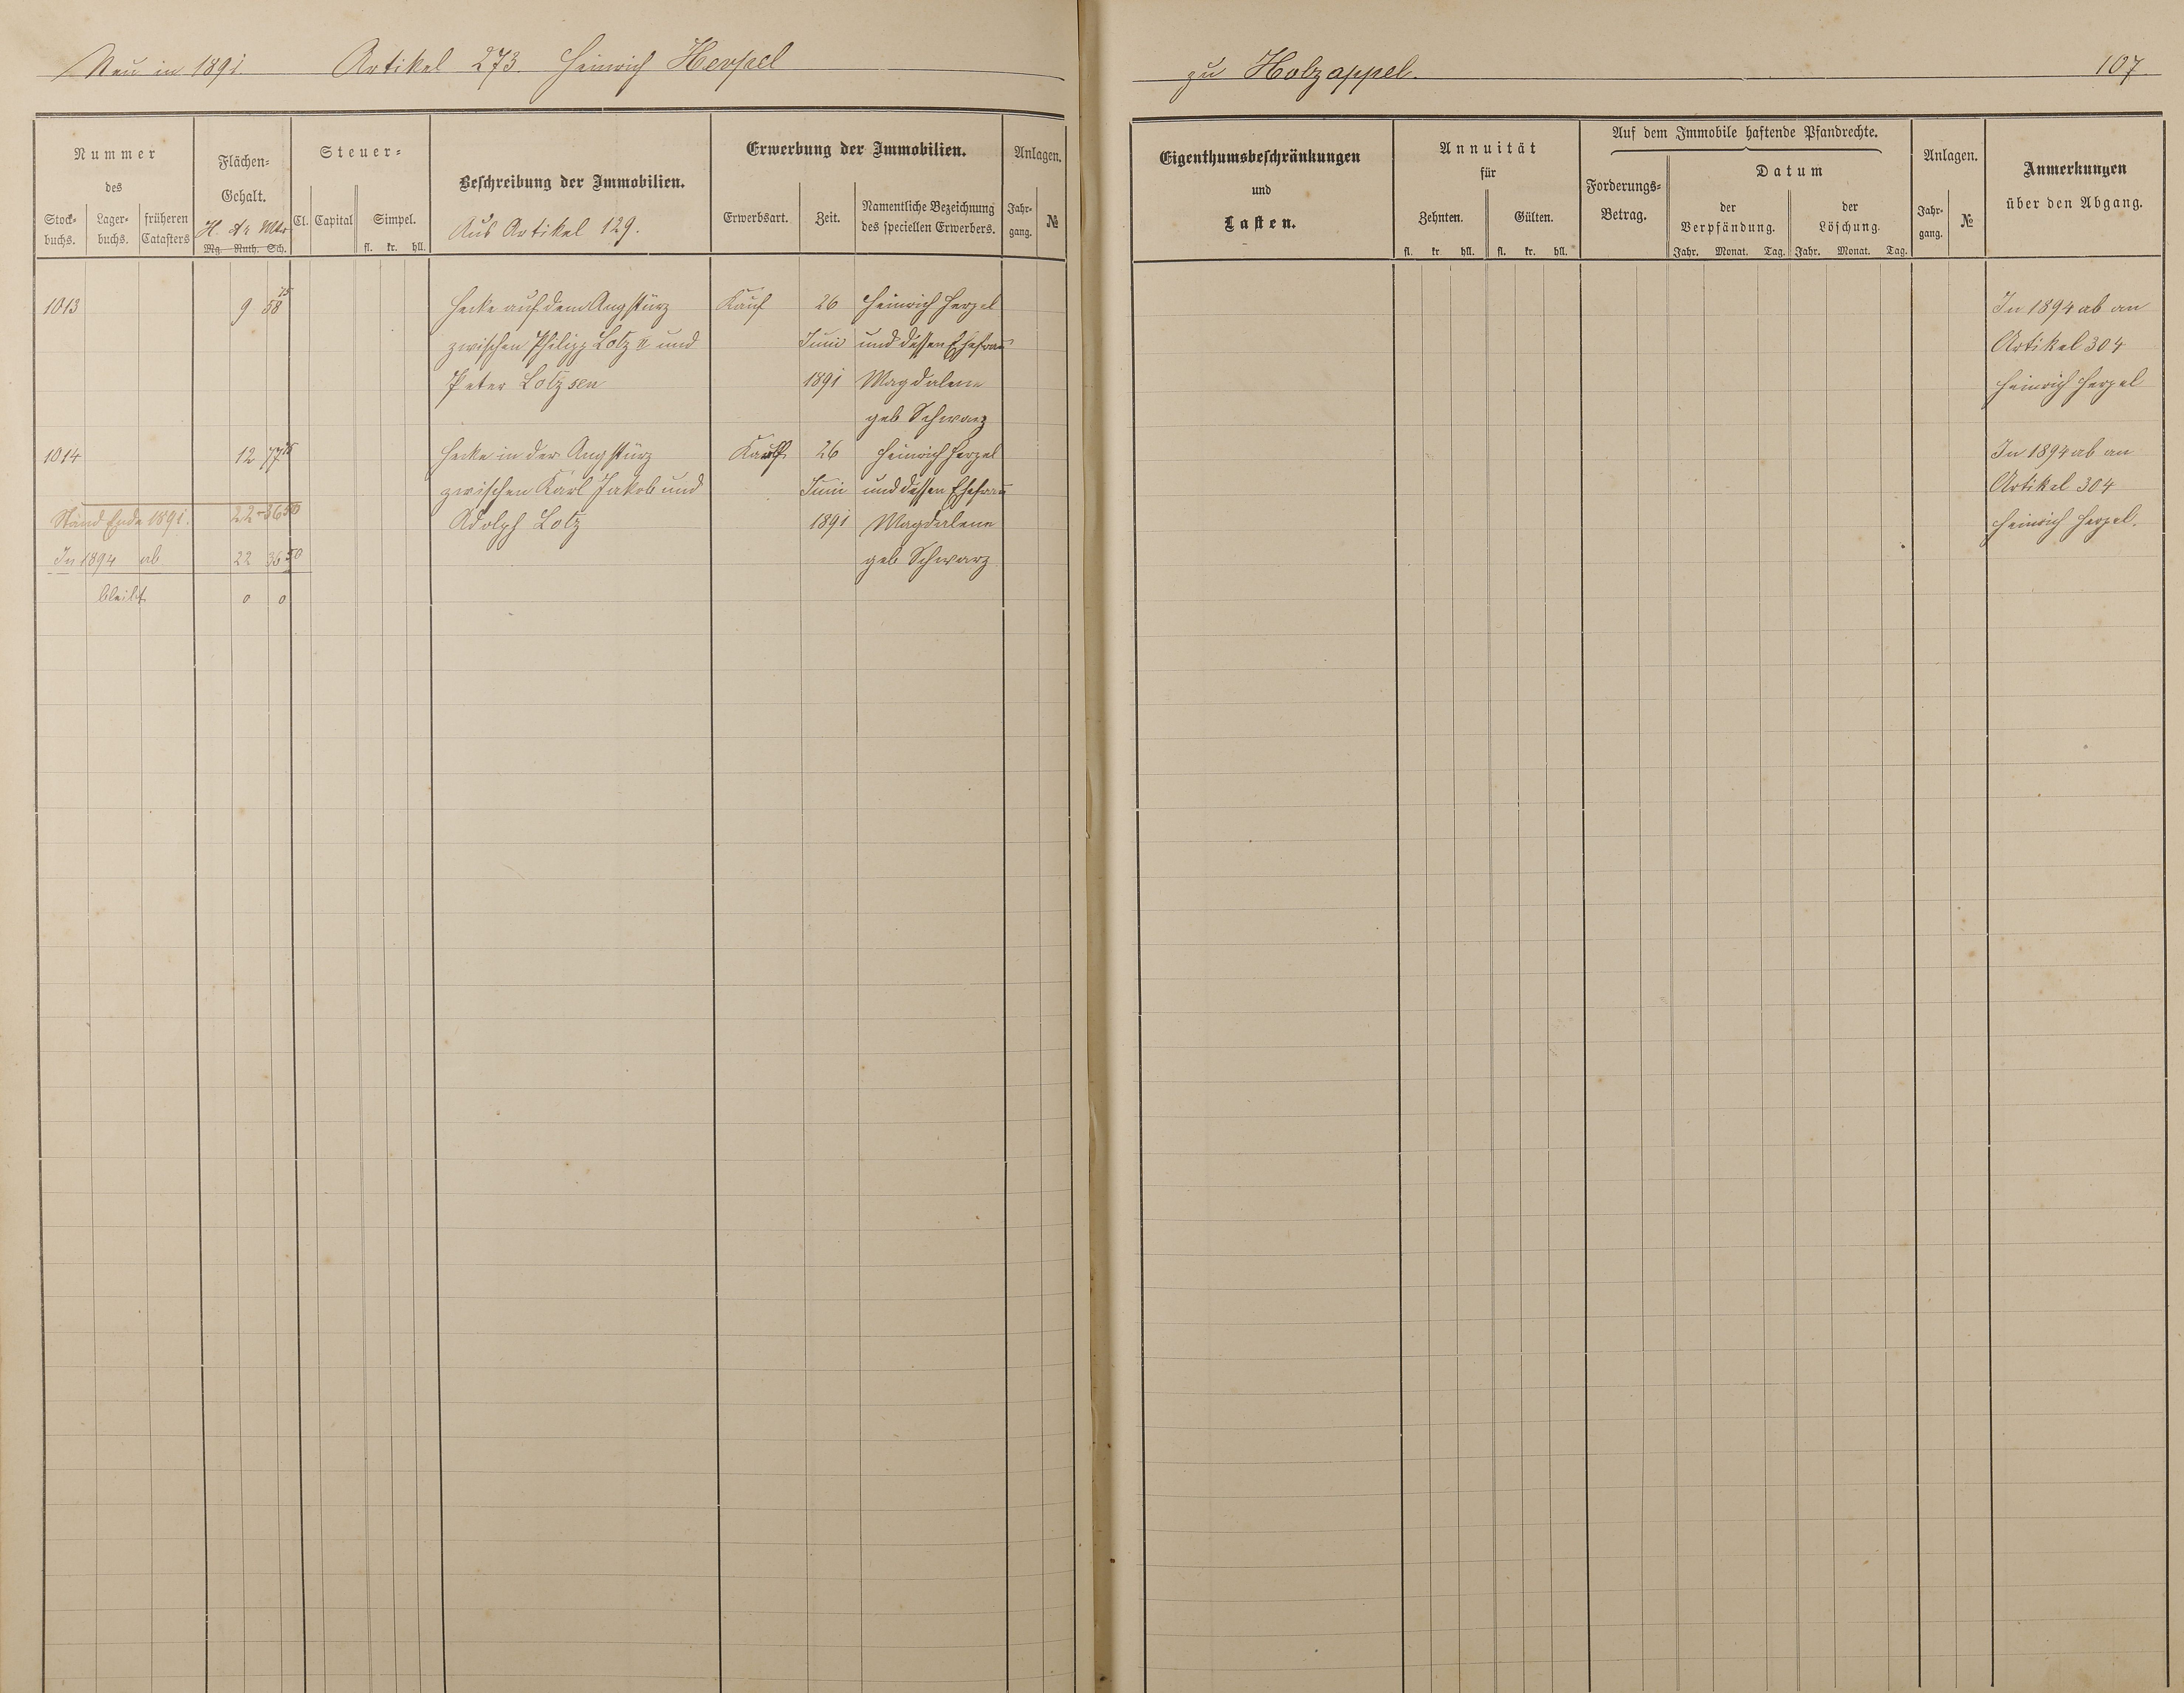 Neu in 1891. Artikel 273. Heinrich Herpel
zu Holzappel. 107.
Nummer
des
Stock-
buchs.
Lager-
buchs.
früheren
Catasters
Flächen-
Gehalt.
H. Ar Mtr
Mg. Ruth. Sch.
Steuer-
Cl. Capital Simpel.
fl. kr. hll.
Beschreibung der Immobilien.
Aus Artikel 129.
Erwerbung der Immobilien.
Erwerbsart. Zeit.
Namentliche Bezeichnung
des speciellen Erwerbers.
Anlagen.
Jahr-
gang.
№
1013 9 58 75 Hecke auf dem Angstürz Kauf 26 Heinrich Herpel
zwischen Philipp Lotz II und Juni und dessen Ehefrau
Peter Lotz sen 1891 Magdalene
geb Schwarz
1014 12 77 75 Hecke in der Angstürz Kauf 26 Heinrich Herpel
zwischen Karl Jakob und Juni und dessen Ehefrau
Stand Ende 1891. 22 36 50 Adolph Lotz 1891 Magdalene
In 1894 ab 22 36 50 geb Schwarz
bleibt 0 0
Eigenthumsbeschränkungen
und
Lasten.
Annuität
für
Zehnten. Gülten.
fl. kr. hll. fl. kr. hll.
Auf dem Immobile haftende Pfandrechte.
Forderungs-
Betrag.
Datum
der
Verpfändung.
der
Löschung.
Jahr. Monat. Tag. Jahr. Monat. Tag.
Anlagen.
Jahr-
gang.
№
Anmerkungen
über den Abgang.
In 1894 ab an
Artikel 304
Heinrich Herpel
In 1894 ab an
Artikel 304
Heinrich Herpel.